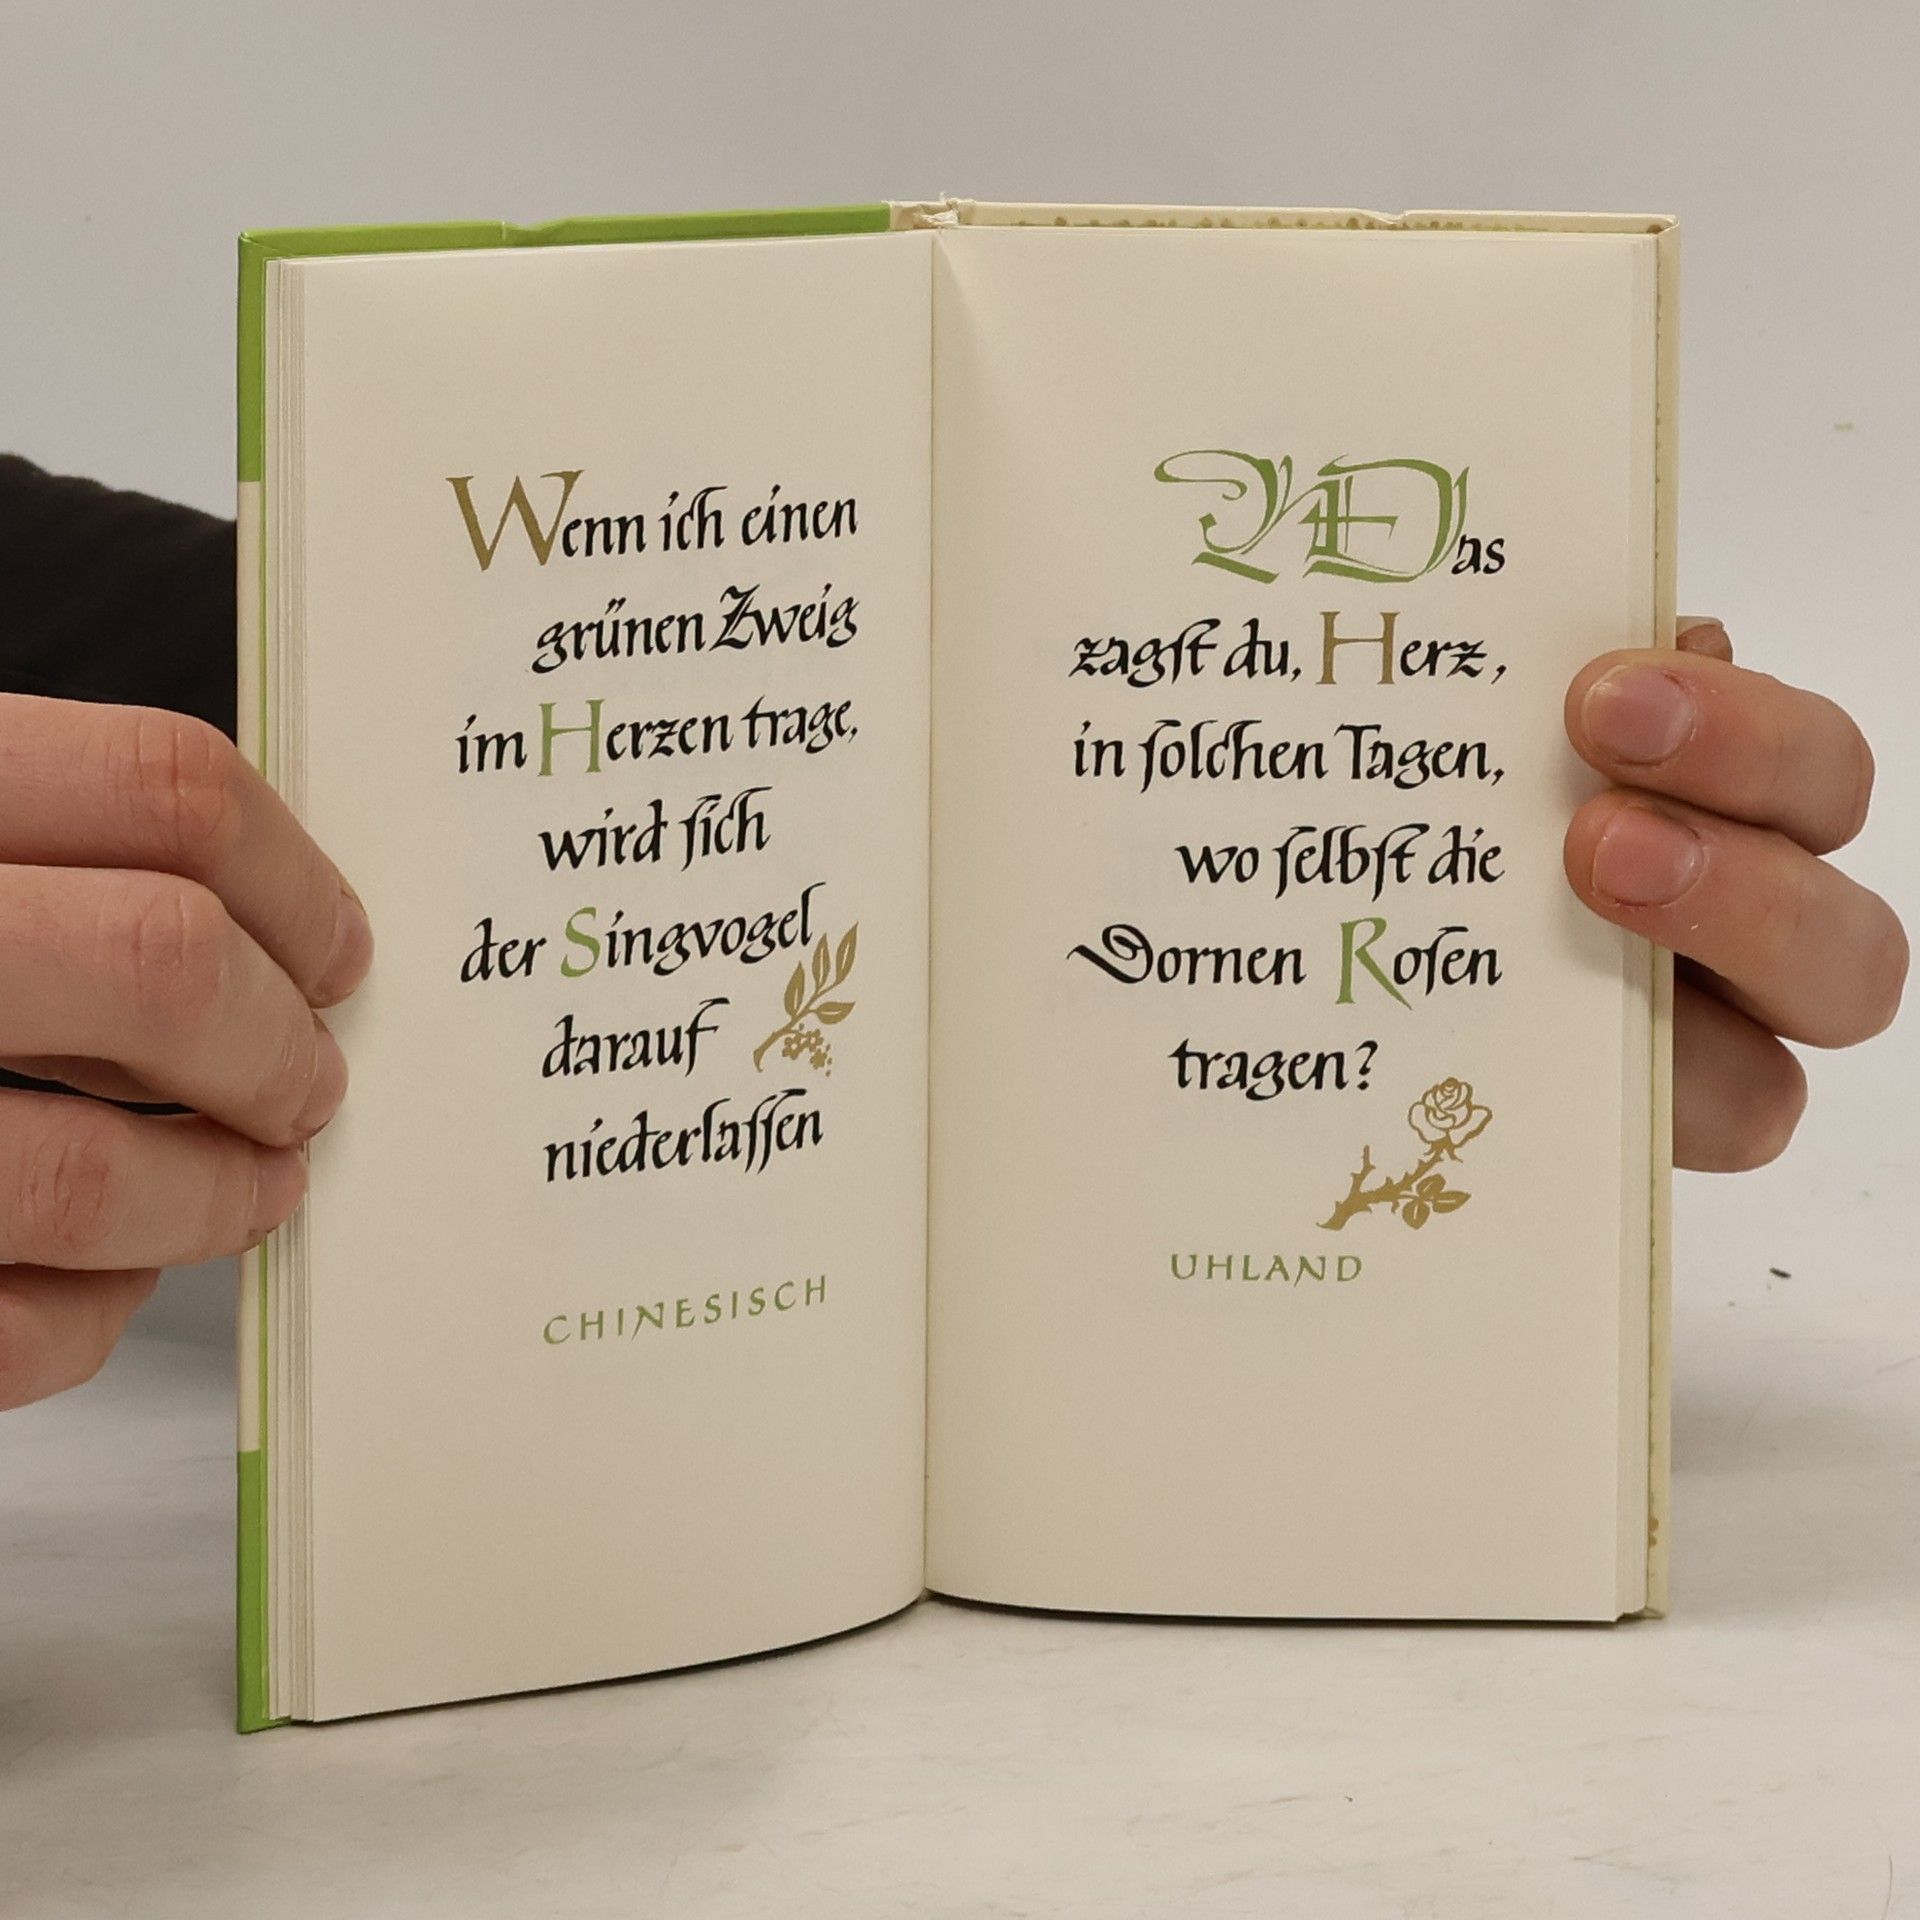 Wenn ich einen
grünen Zweig
im Herzen trage,
wird ſich
der Singvogel
darauf
niederlaſſen
CHINESISCH
Was
zagſt du, Herz,
in ſolchen Tagen,
wo ſelbſt die
Dornen Roſen
tragen?
UHLAND